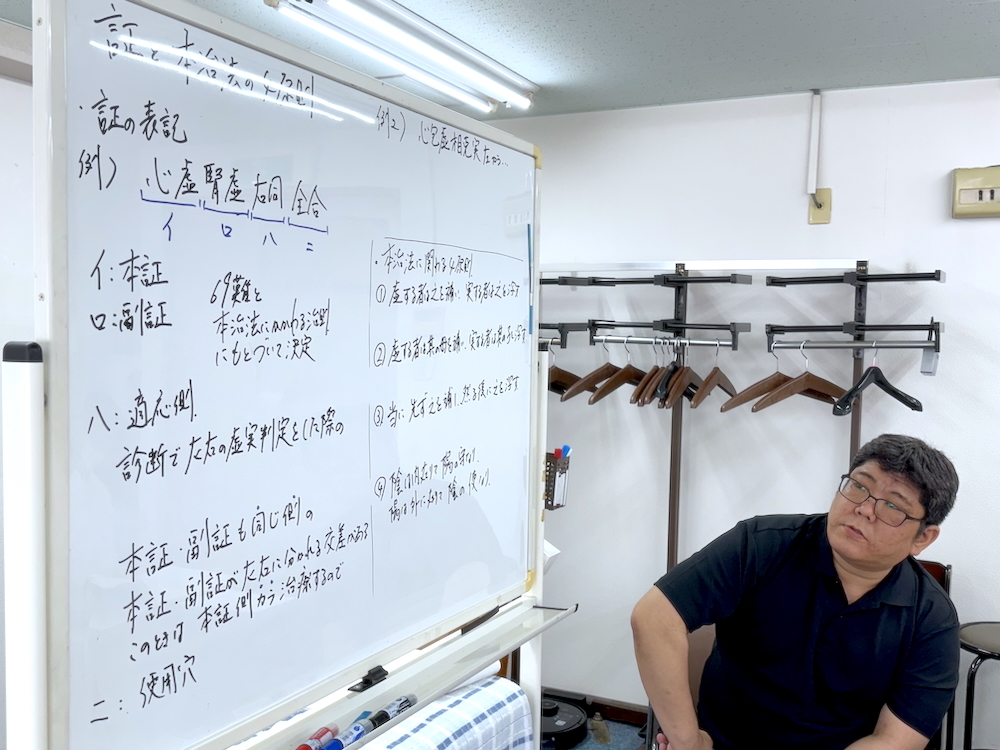 証と本治法の4原則
・証の表記
例) 心虚腎虚右同全合
イ ロ ハ ニ
イ:本証
ロ:副証
69難と
本治法にかかわる治則
にもとづいて決定
ハ:適応側
診断で左右の虚実判定をした際の
本証・副証も同じ側の
本証・副証が左右に分かれる交差がある
このときは 本証側から治療するので
ニ:使用穴
例2) 心包虚相克実左から…
・本治法に関わる4原則
① 虚する者は之を補い、実する者は之を瀉す
② 虚する者は其の母を補い、実する者は其の子を瀉す
③ 当に先ず之を補し、然る後に之を瀉す
④ 陰は内に在りて陽の守なり、
陽は外に在りて陰の使なり